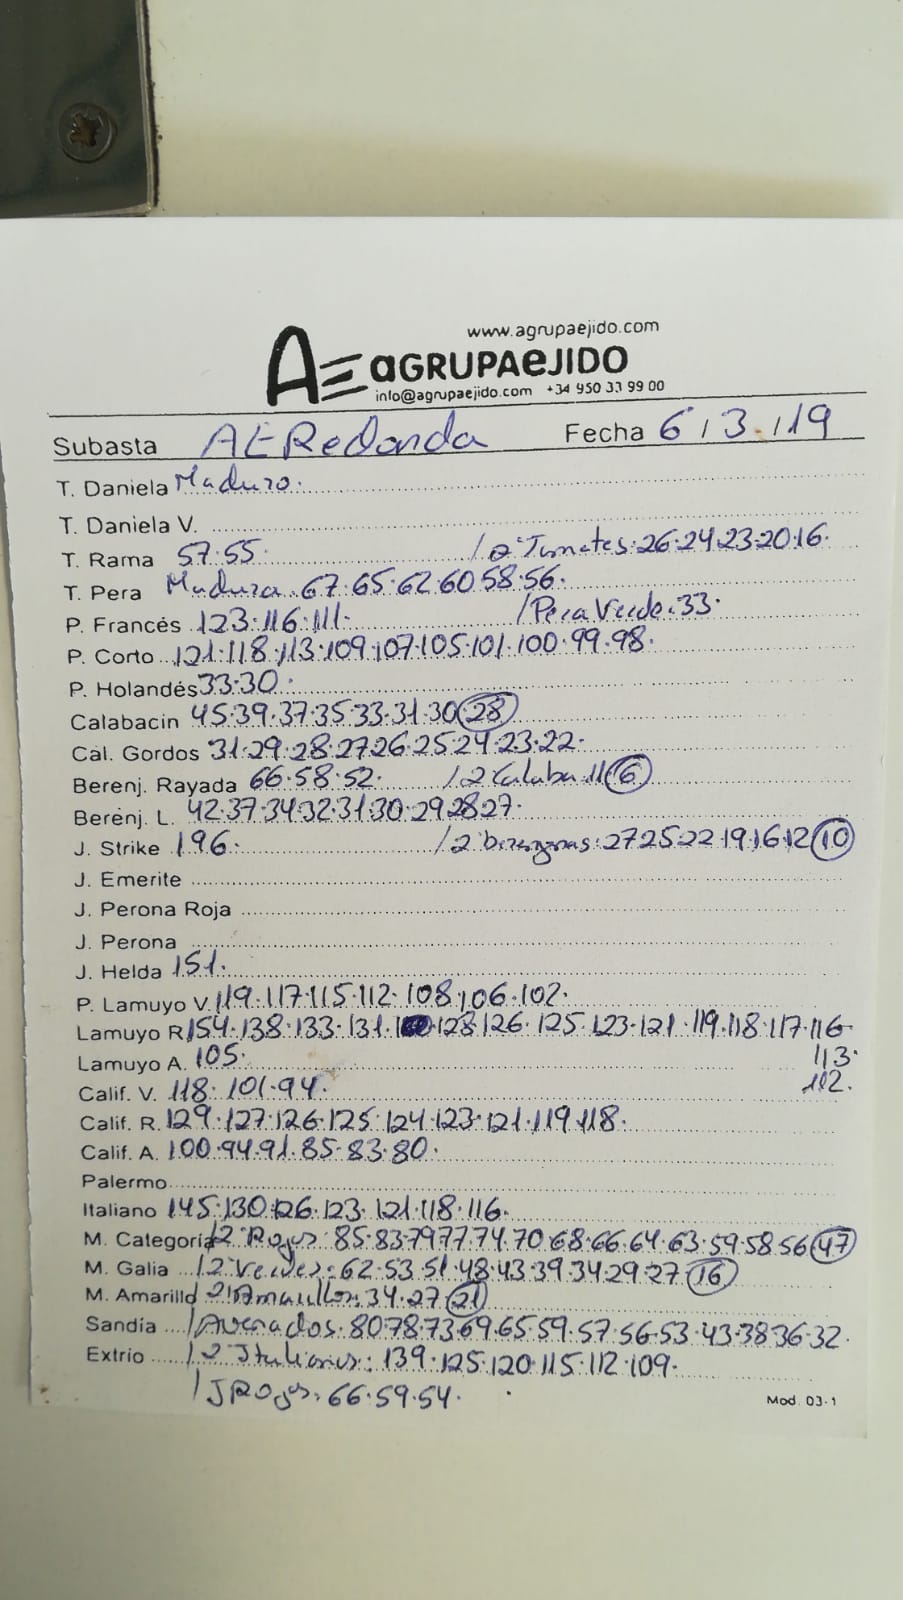 www.agrupaejido.com
AE aGRUPAeJIDO
info@agrupaejido.com +34 950 33 99 00
Subasta AE Redonda Fecha 6/3/19
T. Daniela Maduro.
T. Daniela V.
T. Rama 57·55· /2ª Tomates: 26·24·23·20·16·
T. Pera Madura 67·65·62·60·58·56·
P. Francés 123·116·111· /Pera Verde: 33·
P. Corto 121·118·113·109·107·105·101·100·99·98·
P. Holandés 33·30·
Calabacin 45·39·37·35·33·31·30·28
Cal. Gordos 31·29·28·27·26·25·24·23·22·
Berenj. Rayada 66·58·52· /2ª Calaba 11·6
Berenj. L. 42·37·34·32·31·30·29·28·27·
J. Strike 196· /2ª berenjenas: 27·25·22·19·16·12·10
J. Emerite
J. Perona Roja
J. Perona
J. Helda 151·
P. Lamuyo V. 119·117·115·112·108·106·102·
Lamuyo R. 154·138·133·131·128·126·125·123·121·119·118·117·116·
Lamuyo A. 105· 113·
Calif. V. 118·101·94· 112·
Calif. R. 129·127·126·125·124·123·121·119·118·
Calif. A. 100·94·91·85·83·80·
Palermo
Italiano 145·130·126·123·121·118·116·
M. Categoría /2ª Rojos: 85·83·79·77·74·70·68·66·64·63·59·58·56·47
M. Galia /2ª Verdes: 62·53·51·48·43·39·34·29·27·16
M. Amarillo 2ª Amarillos: 34·27·21
Sandía 80·78·73·69·65·59·57·56·53·43·38·36·32·
Extrío /2ª Italianos: 139·125·120·115·112·109·
/J Rojos: 66·59·54·
Mod. 03-1